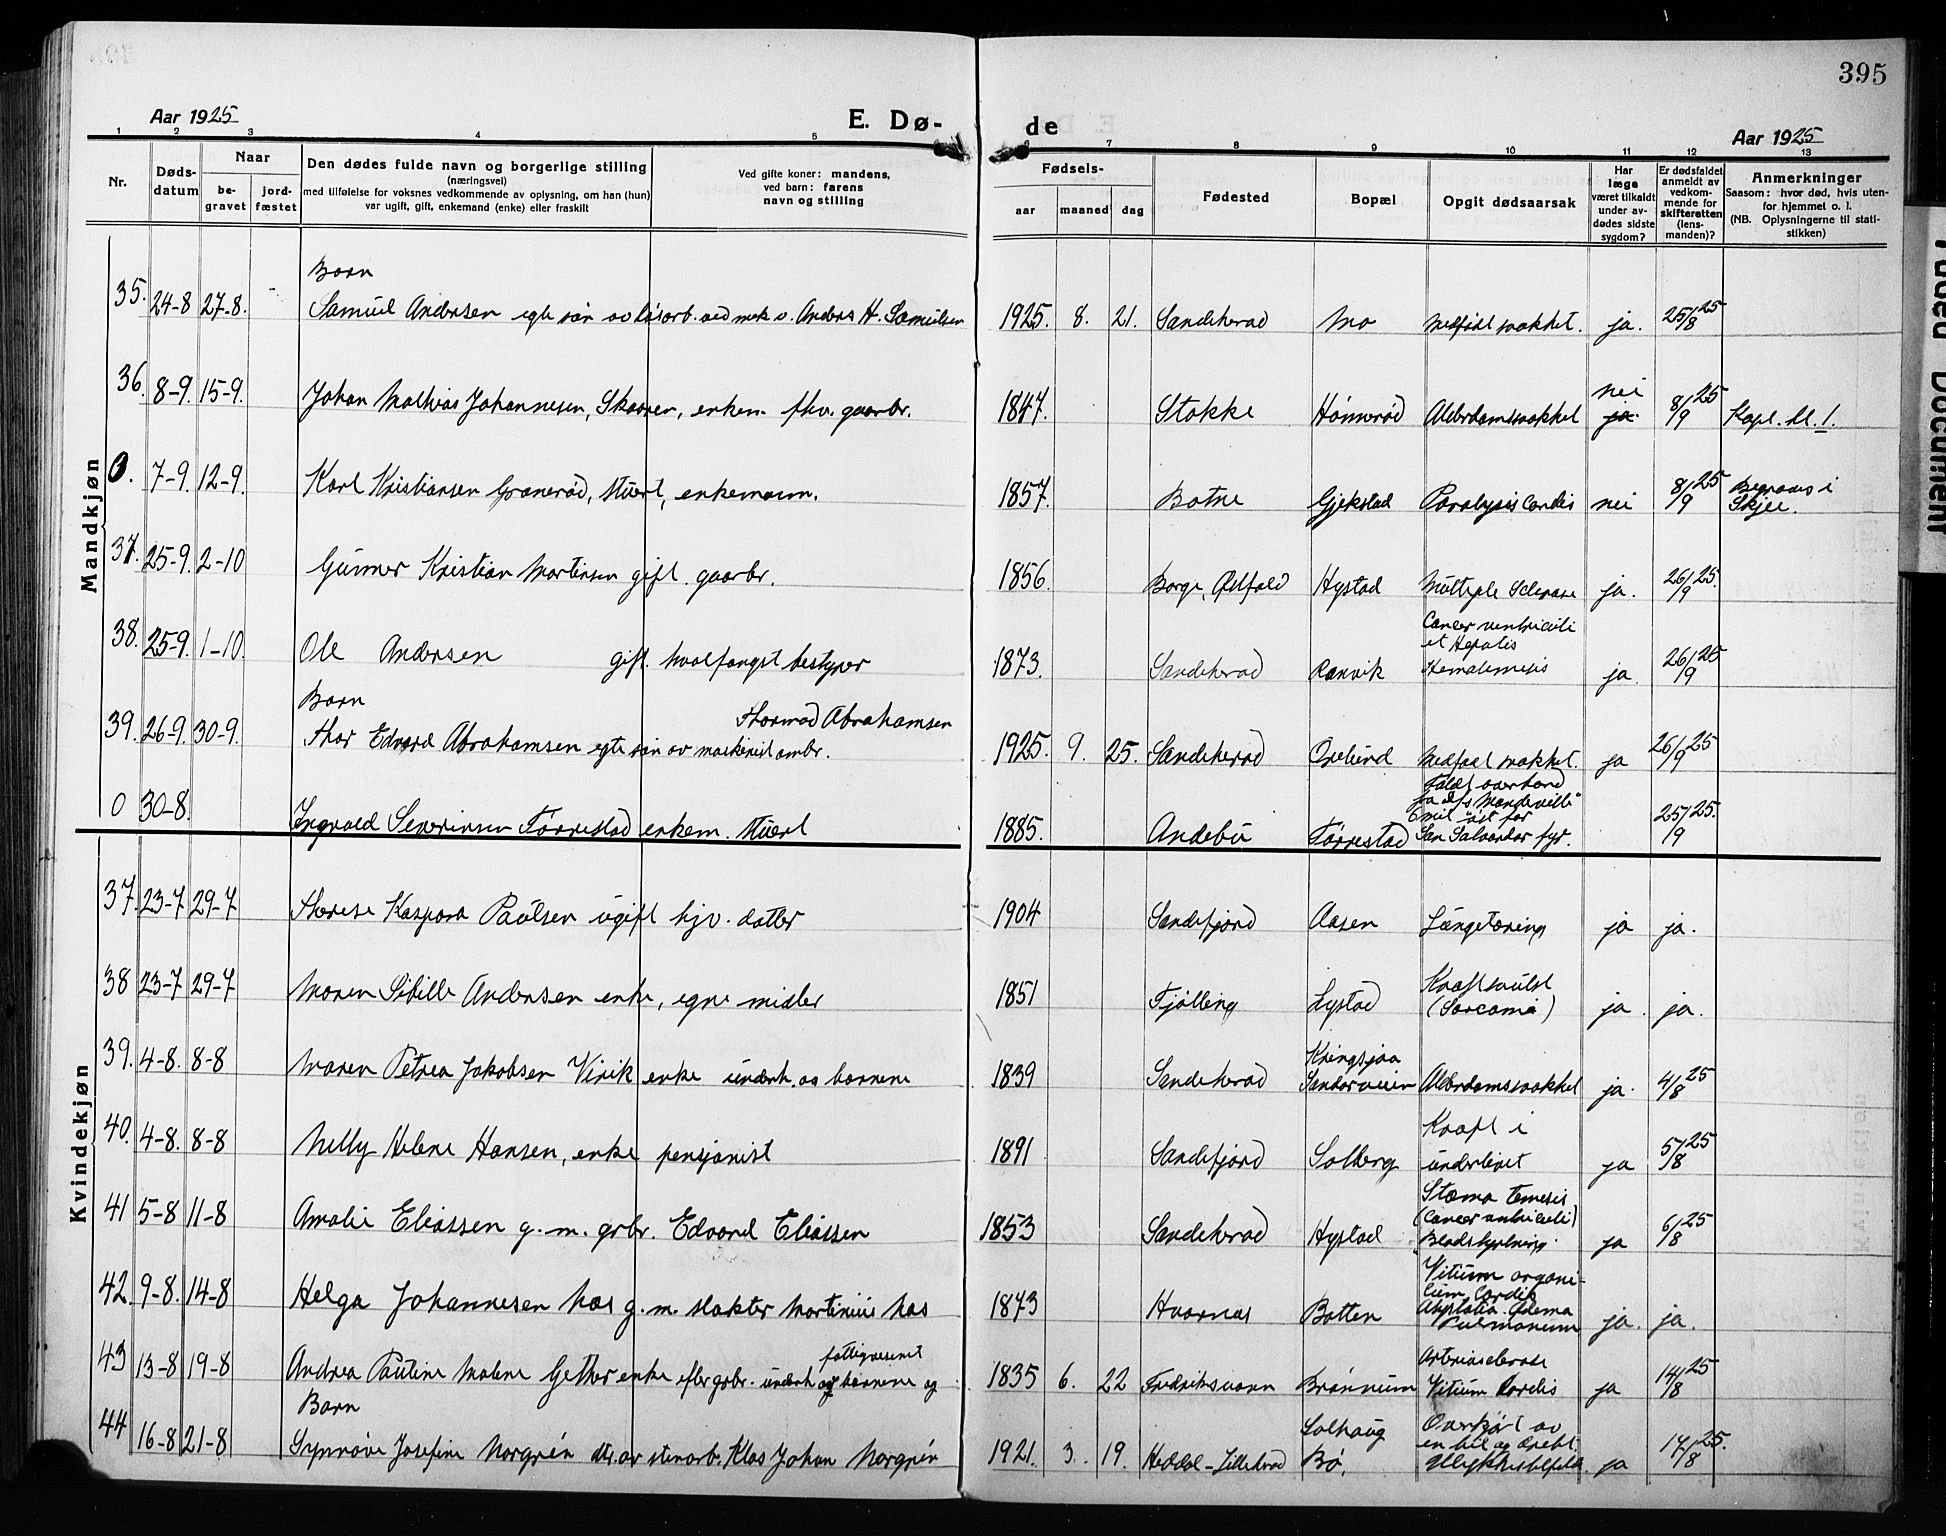 395
Aar 1925
E. Dø-
de
Aar 1925
1 2 3 4 5 6 7 8 9 10 11 12 13
Nr.
Døds-
datum
Naar
be-
gravet
jord-
fæstet
Den dødes fulde navn og borgerlige stilling
(næringsvei)
med tilføielse for voksnes vedkommende av oplysning, om han (hun)
var ugift, gift, enkemand (enke) eller fraskilt
Ved gifte koner: mandens,
ved barn: farens
navn og stilling
Fødsels-
aar maaned dag
Fødested
Bopæl
Opgit dødsaarsak
Har
læge
været tilkaldt
under av-
dødes sidste
sygdom?
Er dødsfaldet
anmeldt av
vedkom-
mende for
skifteretten
(lens-
manden)?
Anmerkninger
Saasom: hvor død, hvis uten-
for hjemmet o. l.
(NB. Oplysningerne til stati-
stikken)
Mandkjøn
Barn
35. 24-8 27-8. Samuel Andersen egte søn av løsarb. ved mek v. Anders H. Samuelsen 1925. 8. 21. Sandeherad Mo Medfødt svakhet. ja. 25/8 25
36. 8-9. 15-9. Johan Mathias Johannesen, Skaaren, enkem. fhv. gaarbr. 1847. Stokke Hemserød Alderdomssvakhet nei ja 8/9 25 Kapl. kl. 1.
0. 7-9. 12-9. Karl Kristiansen Granerød, stuert, enkemann. 1857. Botne Gjekstad Paralysis Cordis nei 8/9 25 Begraves i
Skjee.
37. 25-9. 2-10 Gunner Kristian Martinsen gift. gaarbr. 1856. Borge, Østfold Hystad Multiple Sclerose ja. 26/9 25.
Cancer ventriculi
et Hepatis
38. 25-9. 1-10. Ole Andersen gift. hvalfangst bestyrer 1873. Sandeherad Ranvik Hematemesis ja. 26/9 25
Barn
Thormod Abrahamsen
39. 26-9. 30-9. Thor Edvard Abrahamsen egte søn av maskinist ambr. 1925. 9. 25. Sandeherad Oxelund Medfødt svakhet. ja 26/9 25
Faldt overbord
fra d/s "Mandeville"
6 mil øst for
0 30-8. Ingvald Severinsen Førrestad enkem. stuert 1885. Andebu Førrestad San Salvador fyr. 25/9 25.
Kvindekjøn
37. 23-7 29-7 Therese Kaspara Paulsen ugift hjv. datter 1904 Sandefjord Aasen Lungetæring ja ja.
Kræftsvulst
38 23-7 29-7 Maren Sibille Andersen enke, egne midler 1851 Tjølling Lystad (Sarcoma) ja. ja.
Kringsjaa
39. 4-8. 8-8 Maren Petrea Jakobsen Virik enke underh. av barnene 1839 Sandeherad Sandarveien Alderdomssvakhet ja. 4/8 25
Kræft i
40. 4-8. 8-8 Nelly Helene Hansen, enke pensjonist 1891 Sandefjord Solberg underlivet ja 5/8 25
Stæma temesis
(Cancer ventriculi)
41 5-8 11-8 Amalie Eliassen g. m. grbr. Edvard Eliassen 1853 Sandeherad Hystad Blodstyrtning. ja 6/8 25
Vitium organi-
cum Cordis
42. 9-8. 14-8 Helga Johannesen Næs g. m. slakter Martinius Næs 1873 Hvarnes Botten Ødema
Pulmonum ja. ja.
fattigvesenet
Arteriosclerose
43 13-8 19-8 Andrea Pauline Malene Gether enke efter grbr. underh. av barnene og 1835 6. 22 Fredriksværn Brønnum Vitium Cordis ja 14/8 25
Barn
Solhaug
Overkjørt av
en bil og dræbt.
44 16-8 21-8 Synnøve Josefine Norgrén dtr. av stenarb. Klas Johan Norgrén 1921. 3. 19. Heddal-Lilleherad Bø. Ulykkestilfelde. ja 17/8 25.